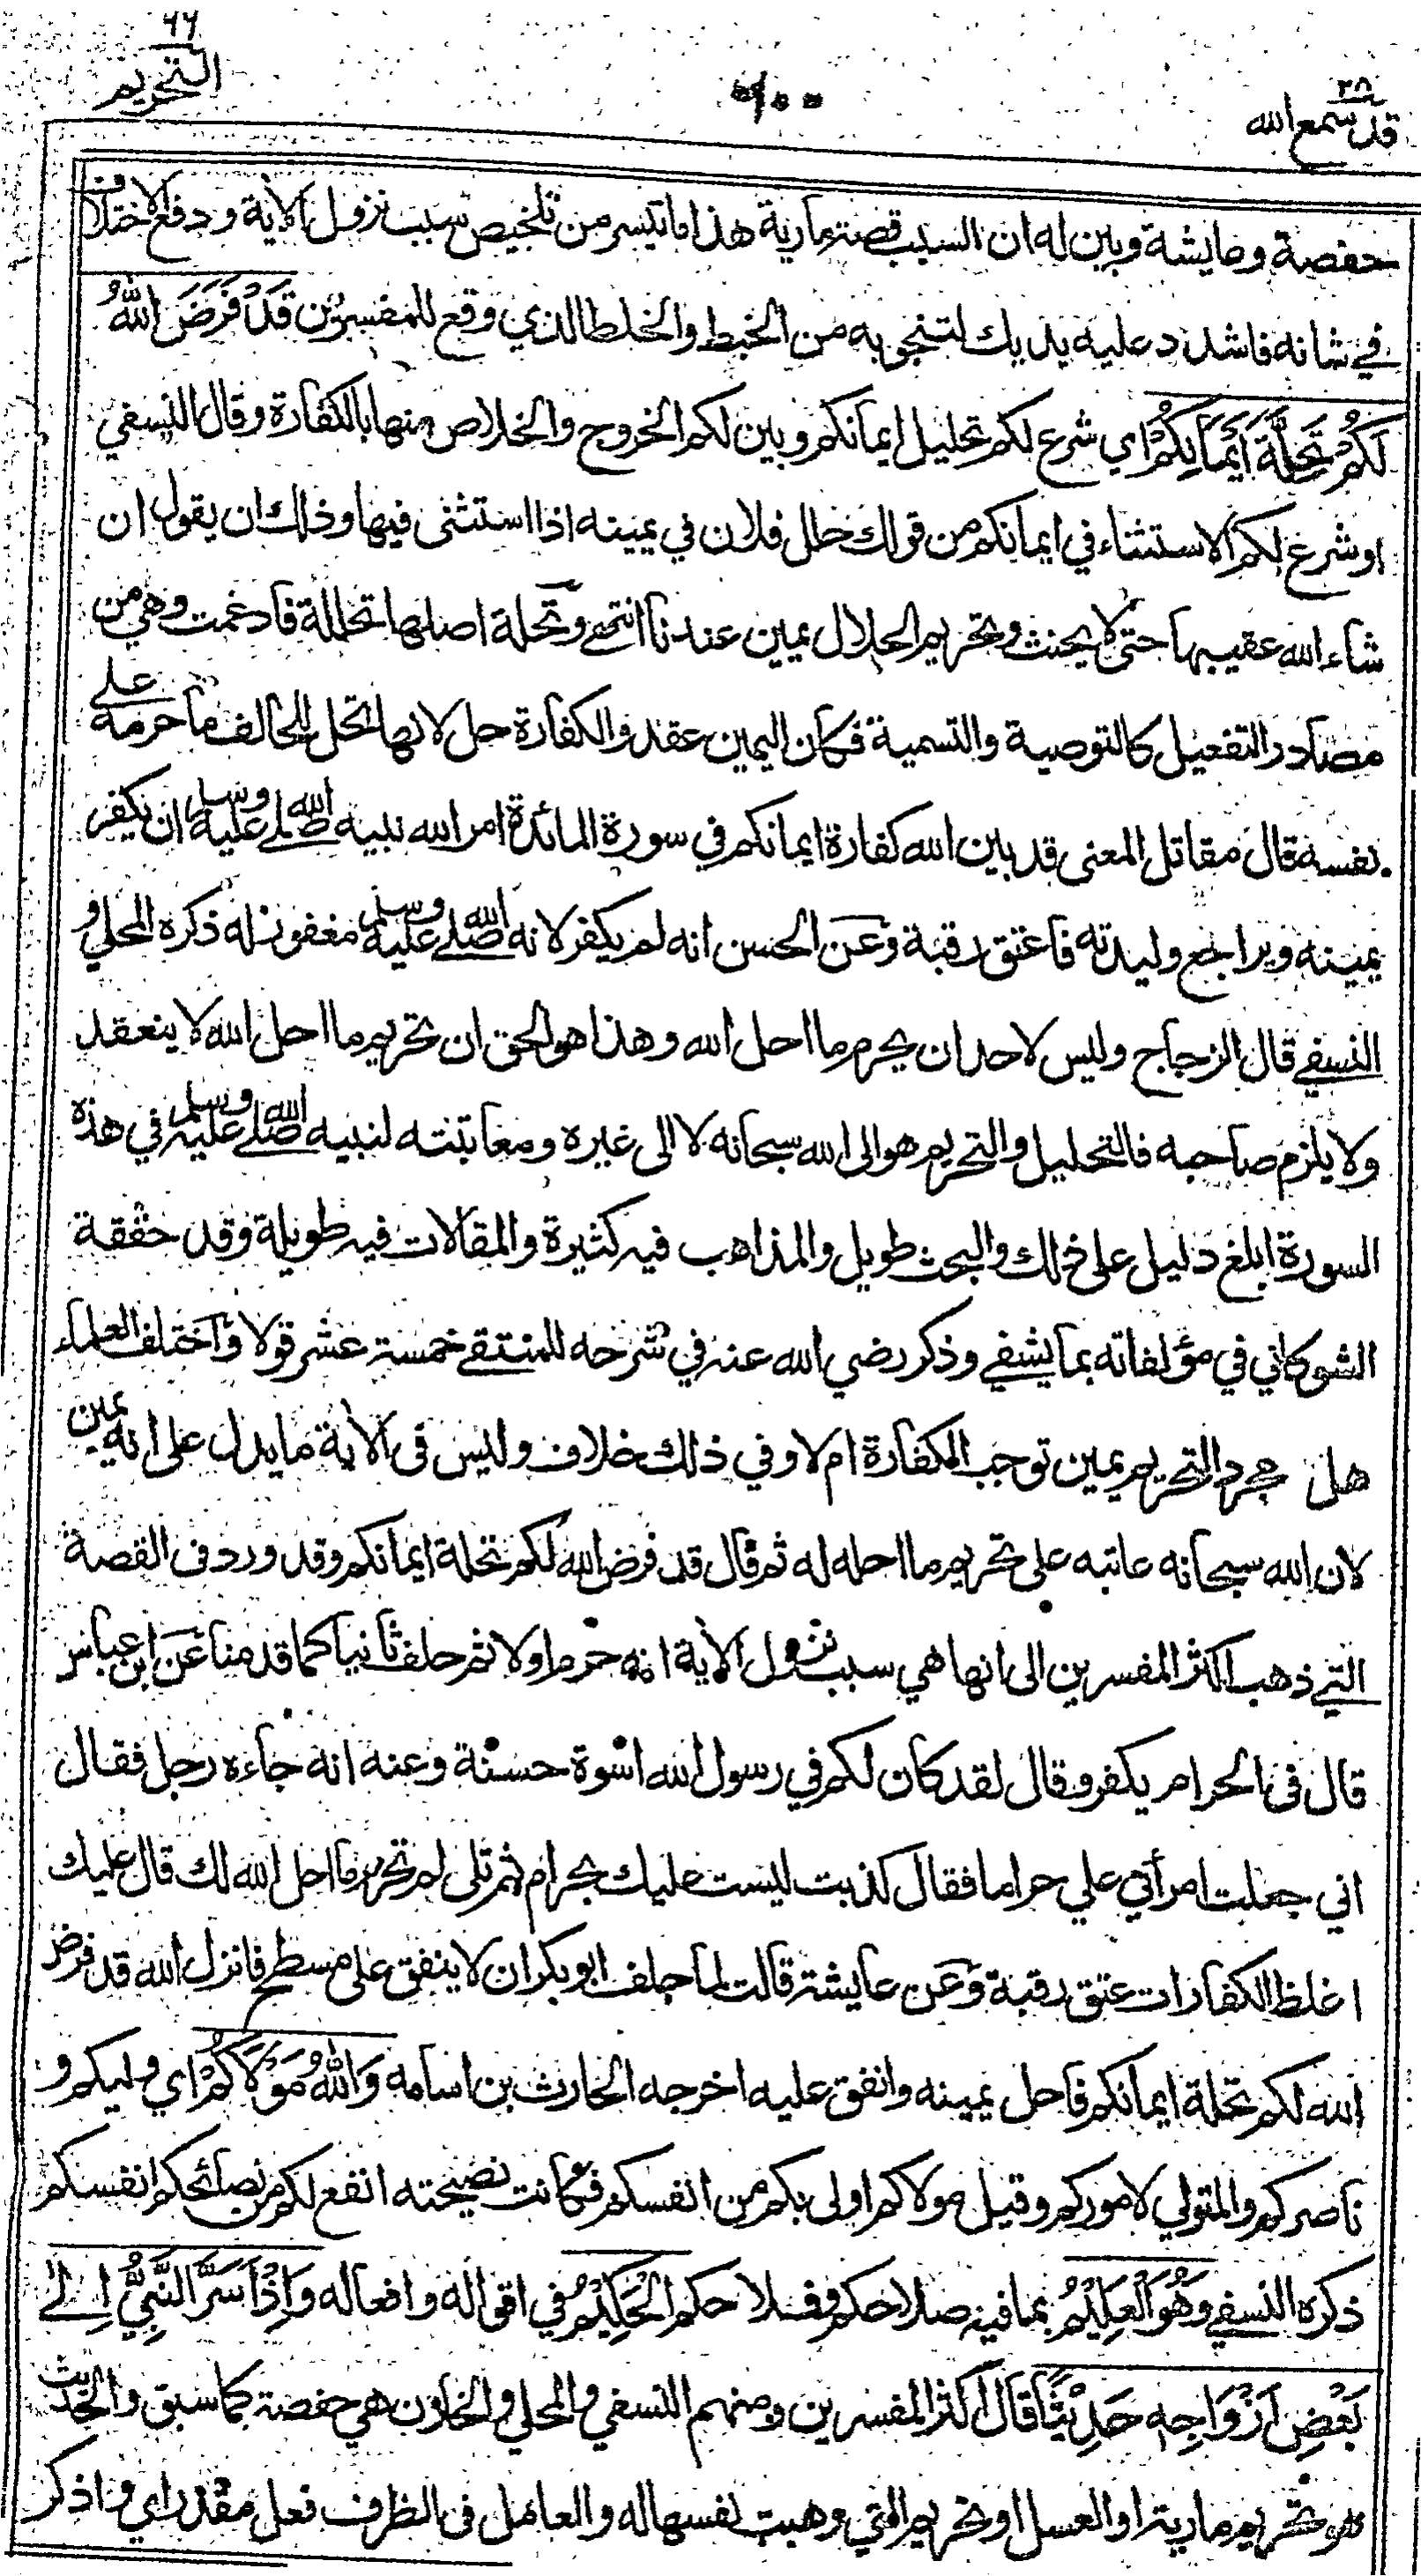 ٢٨
قد سمع الله
٦٦
التحريم
حفصة وعايشة وبين له ان السبب قصة مارية هذا ما تيسر من تلخيص سبب نزول الاٰية ودفع الاختلاف
في شانه فاشدد عليه يديك لتنجو به من الخبط والخلط الذي وقع للمفسرين قَدْ فَرَضَ اللّٰهُ
لَكُمْ تَحِلَّةَ اَيْمَانِكُمْ اي شرع لكم تحليل ايمانكم وبين لكم الخروج والخلاص منها بالكفارة وقال النسفي
او شرع لكم الاستثناء في ايمانكم من قولك حلل فلان في يمينه اذا استثنى فيها وذلك ان يقول ان
شاء الله عقيبها حتى لا يحنث وتحريم الحلال يمين عندنا انتهى وتحلة اصلها تحللة فادغمت وهي من
مصادر التفعيل كالتوصية والتسمية فكان اليمين عقد والكفارة حل لانها تحل للحالف ما حرمه على
نفسه قال مقاتل المعنى قد بين الله كفارة ايمانكم في سورة المائدة امر الله نبيه صلى الله عليه وسلم ان يكفر
يمينه ويراجع وليدته فاعتق رقبة وعن الحسن انه لم يكفر لانه صلى الله عليه وسلم مغفور له ذكره المحلي و
النسفي قال الزجاج وليس لاحد ان يحرم ما احل الله وهذا هو الحق ان تحريم ما احل الله لا ينعقد
ولا يلزم صاحبه فالتحليل والتحريم هو الى الله سبحانه لا الى غيره ومعاتبته لنبيه صلى الله عليه وسلم في هذه
السورة ابلغ دليل على ذلك والبحث طويل والمذاهب فيه كثيرة والمقالات فيه طويلة وقد حققه
الشوكاني في مؤلفاته بما يشفي وذكر رضي الله عنه في شرحه للمنتقى خمسة عشر قولا واختلف العلماء
هل مجرد التحريم يمين توجب الكفارة ام لا وفي ذلك خلاف وليس فى الاٰية ما يدل على انه يمين
لان الله سبحانه عاتبه على تحريم ما احله له ثم قال قد فرض الله لكم تحلة ايمانكم وقد ورد فى القصة
التي ذهب اكثر المفسرين الى انها هي سبب نزول الاٰية انه حرم اولا ثم حلف ثانيا كما قدمنا عن ابن عباس
قال فى الحرام يكفر وقال لقد كان لكم في رسول الله اسوة حسنة وعنه انه جاءه رجل فقال
اني جعلت امرأتي علي حراما فقال كذبت ليست عليك بحرام ثم تلى لم تحرم ما احل الله لك قال عليك
اغلظ الكفارات عتق رقبة وعن عايشة قالت لما حلف ابو بكر ان لا ينفق على مسطح فانزل الله قد فرض
الله لكم تحلة ايمانكم فاحل يمينه وانفق عليه اخرجه الحارث بن اسامه وَاللّٰهُ مَوْلَاكُمْ اي وليكم و
ناصركم والمتولي لاموركم وقيل مولاكم اولى بكم من انفسكم فكانت نصيحته انفع لكم من نصائحكم انفسكم
ذكره النسفي وَهُوَ الْعَلِيْمُ بما فيه صلاحكم وفلاحكم الْحَكِيْمُ في اقواله وافعاله وَاِذْ اَسَرَّ النَّبِيُّ اِلىٰ
بَعْضِ اَزْوَاجِهٖ حَدِيْثًا قال اكثر المفسرين ومنهم النسفي والمحلي والخازن هي حفصة كما سبق والحديث
هو تحريم مارية او العسل او تحريم التي وهبت نفسها له والعامل فى الظرف فعل مقدر اي واذكر